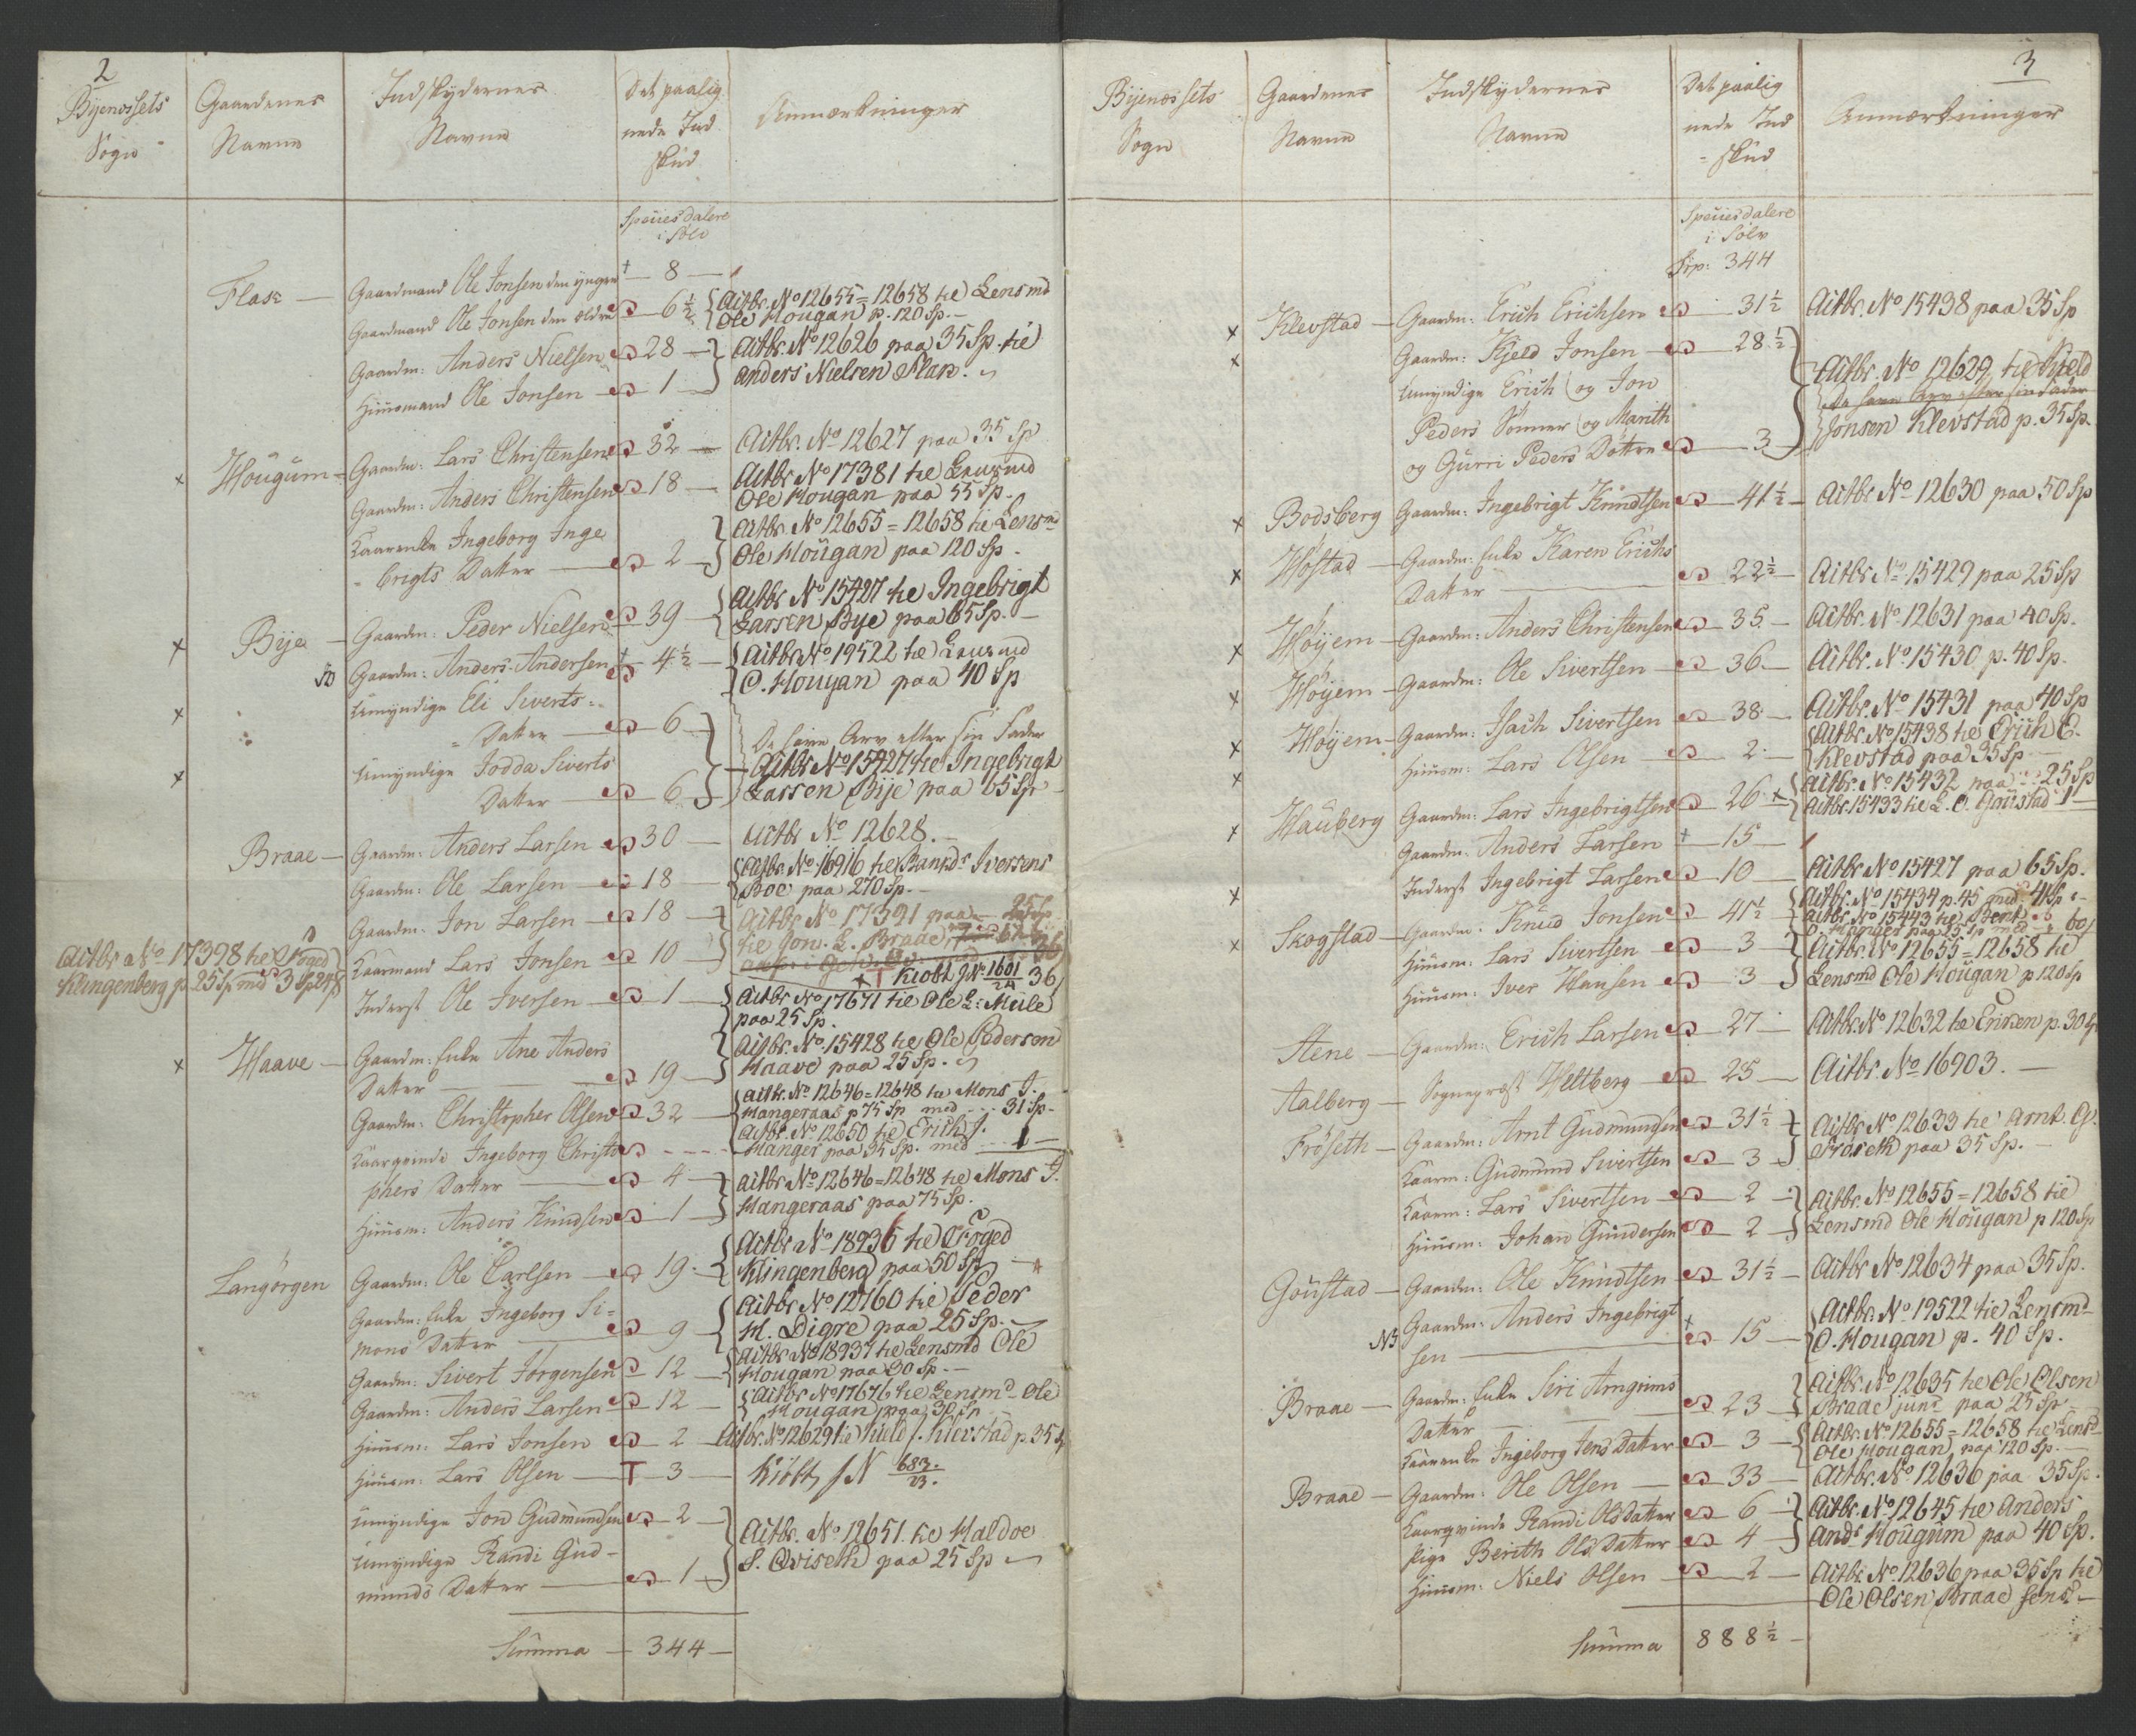 2
Bÿenæssets Sogn
Gaardenes Navne
Indskydernes Navne
Det paalignede Indskud
Anmærkninger
Speciesdalere i Sølv
Flaae — Gaardmand Ole Jonsen den yngre + 8 —
Gaardmand Ole Jonsen den ældre — 6 1/2 Actbr. No 12655 = 12658 til Lensmd
Ole Hougan p. 120 Sp. —
Gaardm: Anders Nielsen 28 — Actbr. No 12626 paa 35 Sp. til
Huusmand Ole Jonsen — 1 — Anders Nielsen Flaae.
x Hougum — Gaardm: Lars Christensen 32 — Actbr. No 12627 paa 35 Sp
Gaardm: Anders Christensen 18 — Actbr No 17381 til Lensmd
Ole Hougan paa 55 Sp.
Kaarenke Ingeborg Inge
brigts Datter — 2 — Actbr. No 12655 = 12658 til Lensmd
Ole Hougan paa 120 Sp.
x Bije — Gaardm: Peder Nielsen 39 — Actbr No 15427 til Ingebrigt
Larsen Bye paa 65 Sp. —
Gaardm: Anders Andersen + 4 1/2 — Actbr No 19522 til Lensmd
O. Hougan paa 40 Sp
x Umyndige Eli Siverts
Datter — 6 — De have Arv efter sin Fader
x Umyndige Jodda Siverts
Datter — 6 Actbr No 15427 til Ingebrigt
Larsen Bije paa 65 Sp.
Braae — Gaardm: Anders Larsen 30 — Actbr No 12628. —
Gaardm: Ole Larsen — 18 — Actbr. No 16916 til Iversens
Boe paa 270 Sp. —
Gaardm: Jon Larsen — 18 — Actbr No 17391 paa — 25 Sp
til Jon L. Braae
Actbr No 17398 til Foged
Klingenberg p 25 Sp md 3 Sp 24 s
Kaarmand Lars Jonsen 10 —
Kiøbt J No 1601/24 36
Inderst Ole Iversen — 1 — Actbr No 17671 til Ole L: Mule
paa 25 Sp.
x Haave — Gaardm: Enke Ane Anders
Datter — 19 — Actbr. No 15428 til Ole Pedersen
Haave paa 25 Sp.
Gaardm: Christopher Olsen 32 — Actbr. No 12646 = 12648 til Mons J.
Hangeraas p 75 Sp med — 31 Sp.
Actbr. No 12650 til Erich J.
Hanger paa 35 Sp. med — 1 —
Kaarqvinde Ingeborg Christo
phers Datter — 4 — Actbr No 12646 = 12648 til Mons J.
Huusm: Anders Knudsen 1 — Hangeraas paa 75 Sp.
Langörgen Gaardm: Ole Carlsen — 19 — Actbr No 18936 til Foged
Klingenberg paa 50 Sp
Gaardm: Enke Ingeborg Si=
mons Datter — 9 — Actbr No 12760 til Peder
H. Digre paa 25 Sp. —
Gaardm: Sivert Jörgensen 12 — Actbr No 18937 til Lensmd Ole
Hougan paa 90 Sp. —
Gaardm: Anders Larsen 12 — Actbr No 17676 til Lensmd Ole
Hougan paa 30 Sp
Huusm: Lars Jonsen — 2 — Actbr. No 12629 til Kield J. Klevstad p. 35 Sp
Huusm: Lars Olsen — T 3 — Kiöbt J N 683/23.
Umyndige Jon Gudmundsen 2 —
Umyndige Randi Gud-
munds Datter — 1 — Actbr. No 12651. til Haldoe
S. Qviseth paa 25 Sp
Summa — 344 —
3
Bijenæssets Sogn
Gaardenes Navne
Indskydernes Navne
Det paalignede Indskud
Anmærkninger
Speciesdalere i Sölv
Trp: 344
x Klevstad — Gaardm: Erich Erichsen — 31 1/2 Actbr. No 15438 paa 35 Sp
x Gaardm: Kjeld Jonsen — 28 1/2
Umyndige Erich og Jon
Peders Sönner og Marith
og Gurri Peders Döttre — 3
Actbr. No 12629 til Kield
De have Arv efter sin Fader
Jonsen Klevstad p. 35 Sp.
x Bodsberg Gaardm: Ingebrigt Knudtsen — 41 1/2 — Actbr No 12630 paa 50 Sp
x Höstad — Gaardm: Enke Karen Erichs
Datter — 22 1/2 — Actbr No 15429 paa 25 Sp
x Höyem — Gaardm: Anders Christensen 35 — Actbr. No 12631 paa 40 Sp.
x Höyem — Gaardm: Ole Sivertsen — 36 — Actbr. No 15430 p. 40 Sp.
x Höyem — Gaardm: Isach Sivertsen — 38 — Actbr. No 15431 paa 40 Sp
x Huusm: Lars Olsen — 2 — Actbr. No 15438 til Erich E.
Klevstad paa 35 Sp —
x Hauberg Gaardm: Lars Ingebrigtsen 26 — Actbr. No 15432 paa — 25 Sp
Actbr. 15433 til L. O. Goustad 1 —
Gaardm: Anders Larsen + 15 —
x Inderst Ingebrigt Larsen — 10 — Actbr No 15427 paa 65 Sp.
x Skogstad — Gaardm: Knud Jonsen — 41 1/2 Actbr. No 15434 p. 45 med 41 Sp
Actbr. No 15443 til Bent
Hanger paa 25 Sp med — 60 s
Huusm: Lars Sivertsen — 3 — Actbr. No 12655 = 12658 til
Huusm: Iver Hansen — 3 — Lensmd Ole Hougan p 120 Sp
Stene — Gaardm: Erich Larsen — 27 — Actbr. No 12632 til Eriksen p. 30 Sp
Aalberg — Sognepræst Heltberg — 25 — Actbr. No 16903. —
Fröseth — Gaardm: Arnt Gudmundsen — 31 1/2 Actbr No 12633 til Arnt G.
Kaarm: Gudmund Sivertsen — 3 — Fröseth paa 35 Sp. —
Kaarm: Lars Sivertsen — 2 — Actbr. No 12655 = 12658 til
Huusm: Johan Gundersen — 2 — Lensmd Ole Hougan p 120 Sp
Goustad — Gaardm: Ole Knudtsen — 31 1/2 — Actbr No 12634 paa 35 Sp.
NB Gaardm: Anders Ingebrigt
sen — + 15 — Actbr. No 19522 til Lensmd
O. Hougan p. 40 Sp.
Braae — Gaardm: Enke Siri Arngrims
Datter — 23 — Actbr. No 12635 til Ole Olsen
Braae junr paa 25 Sp —
Kaarenke Ingeborg Jens Datter — 3 — Actbr. No 12655 = 12658 til Lensd
Ole Hougan paa 120 Sp. —
Braae — Gaardm: Ole Olsen — 33 — Actbr. No 12636 paa 35 Sp.
Kaarqvinde Randi Ols Datter — 6 — Actbr. No 12645 til Anders
Pige Berith Ols Datter — 4 — Ands Hougum paa 40 Sp.
Huusm: Niels Olsen — 2 — Actbr. No 12636 paa 35 Sp til
Ole Olsen Braae senr —
Summa 888 1/2 —